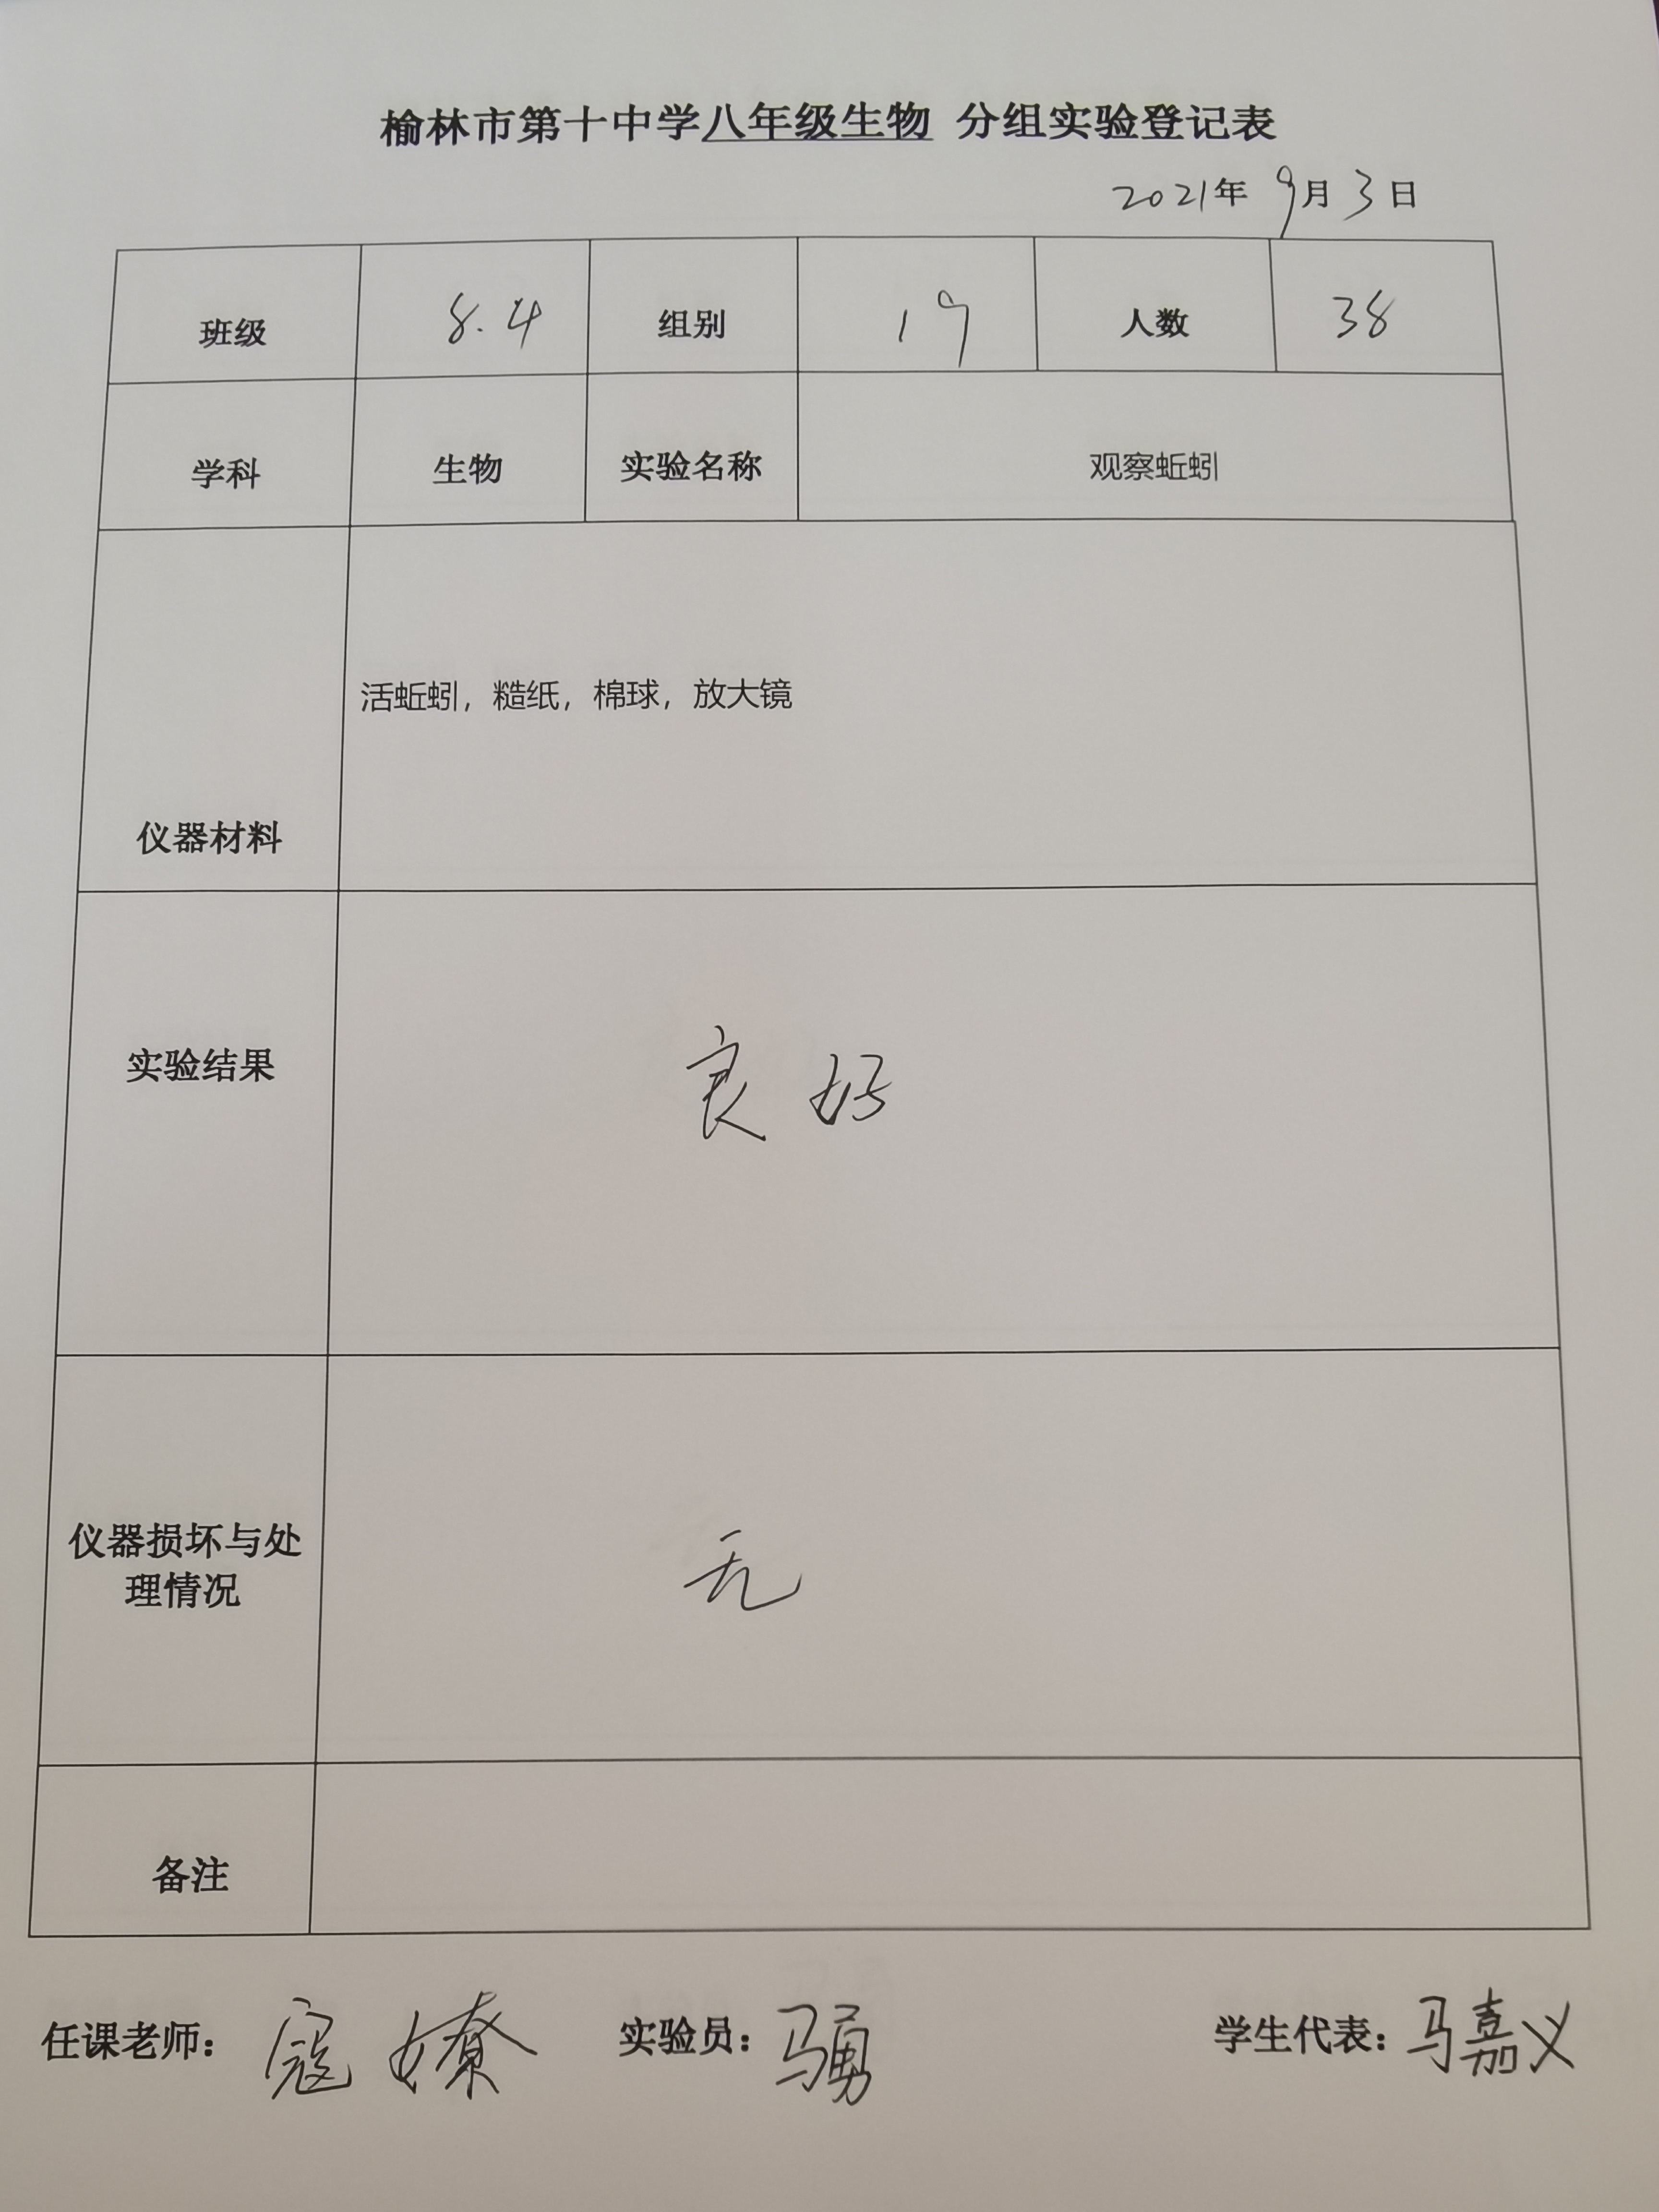 榆林市第十中学八年级生物 分组实验登记表
2021年 9月3日
班级 8.4 组别 19 人数 38
学科 生物 实验名称 观察蚯蚓
活蚯蚓，糙纸，棉球，放大镜
仪器材料
实验结果 良好
仪器损坏与处
理情况
无
备注
任课老师：寇嫽 实验员：马勇 学生代表：马嘉义